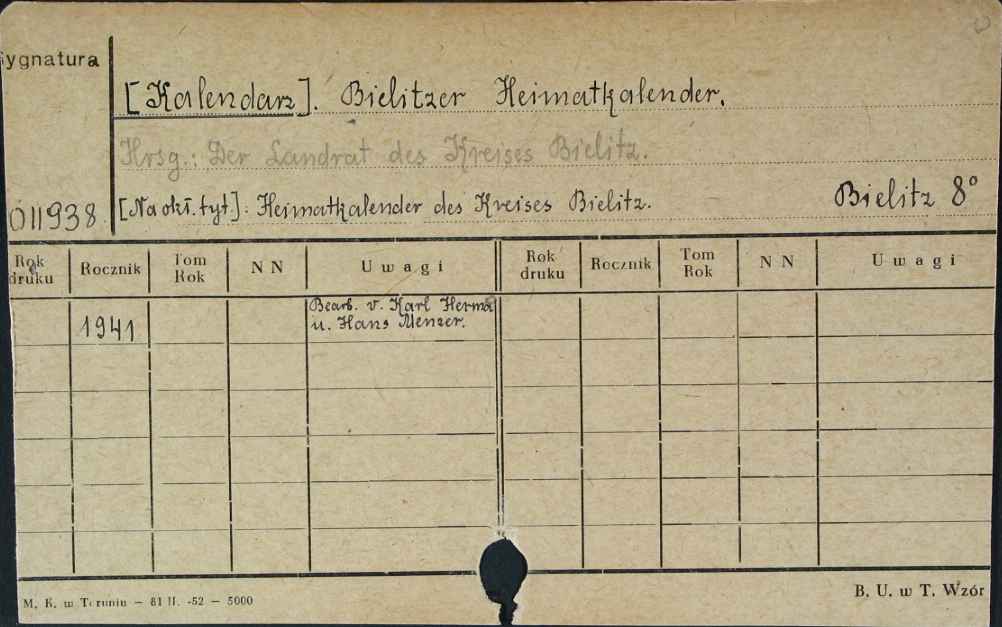 Sygnatura
[Kalendarz]. Bielitzer Heimatkalender.
Hrsg.: Der Landrat des Kreises Bielitz.
011938 [Na okł. tyt.]: Heimatkalender des Kreises Bielitz. Bielitz 8°
Rok druku Rocznik Tom Rok N N Uwagi Rok druku Rocznik Tom Rok N N Uwagi
1941 Bearb. v. Karl Herma
u. Hans Menzer.
M. K. w Toruniu – 81 II. -52 – 5000
B. U. w T. Wzór